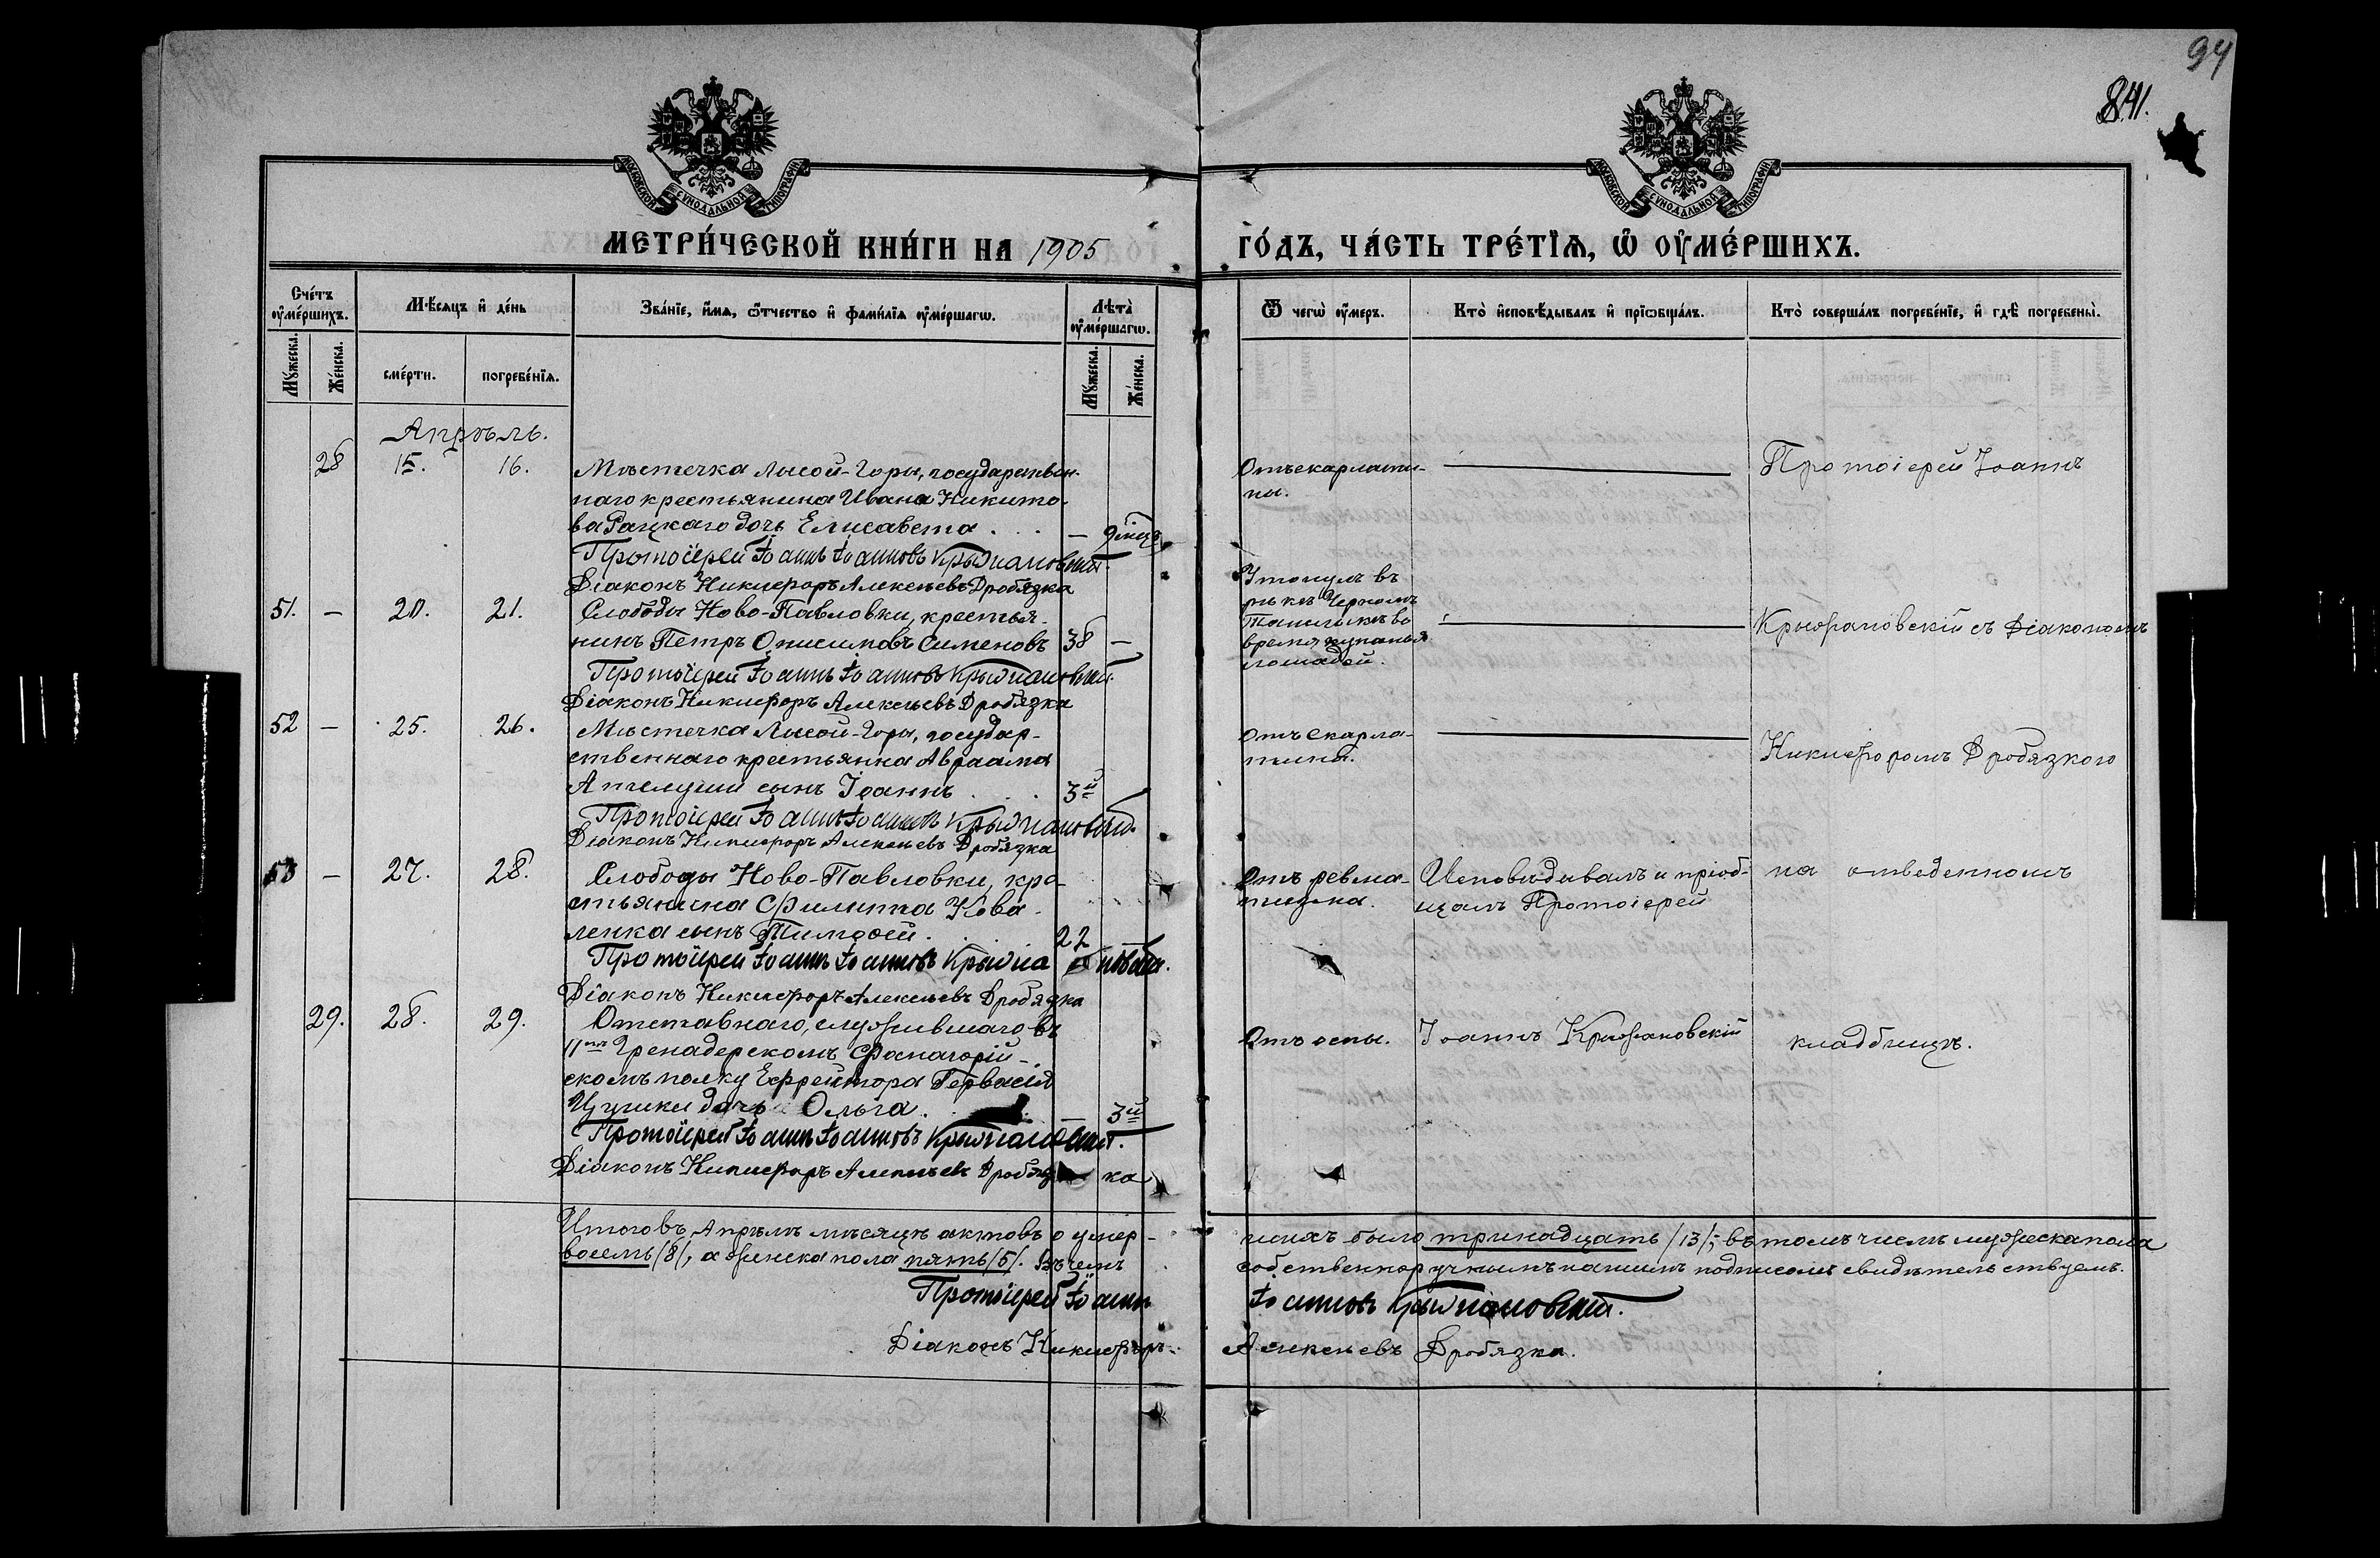 94
841.
МОСКОВСКОЙ СѴНОДАЛЬНОЙ ТИПОГРАФІИ
МОСКОВСКОЙ СѴНОДАЛЬНОЙ ТИПОГРАФІИ
МЕТРИ́ЧЕСКОЙ КНИ́ГИ НА 1905 ГО́ДЪ, ЧА́СТЬ ТРЕ́ТЇѦ, Ѡ҆ ОУ҆МЕ́РШИХЪ.
Сче́тъ оу҆ме́ршихъ.
Мꙋ́жеска.
Же́нска.
Мѣ́сяцъ и҆ де́нь
сме́рти.
погребе́нїѧ.
Зва́нїе, и҆́мѧ, ѻ҆́тчество и҆ фами́лїѧ оу҆ме́ршагѡ.
Лѣта̀ оу҆ме́ршагѡ.
Мꙋ́жеска.
Же́нска.
Ѿ чегѡ̀ оу҆́меръ.
Кто̀ и҆сповѣ́дывалъ и҆ прїѡбща́лъ.
Кто̀ соверша́лъ погребе́нїе, и҆ гдѣ̀ погребены̀.
Апрѣль.
28 15. 16. Мѣстечка Лысой-Горы, государствен-
наго крестьянина Ивана Никито-
ва Рацкаго дочь Елисавета . . — 9 мѣц.
Протоіерей Іоаннъ Іоанновъ Крыжановскій.
Діаконъ Никифоръ Алексѣевъ Дробязка
Отъ скарлати-
ны.
Протоіерей Іоаннъ
51. — 20. 21. Слободы Ново-Павловки, крестья-
нинъ Петръ Онисимовъ Сименовъ 38 —
Протоіерей Іоаннъ Іоанновъ Крыжановскій.
Діаконъ Никифоръ Алексѣевъ Дробязка
Утонулъ въ
рѣкѣ Черномъ
Ташлыкѣ во
время купанья
лошадей.
Крыжановскій съ Діакономъ
52 — 25. 26. Мѣстечка Лысой-Горы, государ-
ственнаго крестьянина Авраама
сынъ Іоаннъ . . . 3й
Протоіерей Іоаннъ Іоанновъ Крыжановскій.
Діаконъ Никифоръ Алексѣевъ Дробязка
Отъ скарла-
тина.
Никифоромъ Дробязкого
53 — 27. 28. Слободы Ново-Павловки, кре-
стьянина Филиппа Кова-
ленка сынъ Тимофей . . 22
Протоіерей Іоаннъ Іоанновъ Крыжановскій.
Діаконъ Никифоръ Алексѣевъ Дробязка
Отъ ревма-
тизма.
Исповѣдывалъ и пріоб-
щалъ Протоіерей
на отведенномъ
29. 28. 29. Отставнаго, служившаго въ
11мъ Гренадерскомъ Фанагорій-
скомъ полку Ефрейтора Гервасія
дочь Ольга. . . 3й
Протоіерей Іоаннъ Іоанновъ Крыжановскій.
Діаконъ Никифоръ Алексѣевъ Дробязка
Отъ оспы.
Іоаннъ Крыжановскій
кладбищѣ.
Итого въ Апрѣлѣ мѣсяцѣ актовъ о умер-
шихъ было тринадцать /13/; въ томъ числѣ мужеска пола
восемь /8/, а женска пола пять /5/. Въ чемъ
собственноручнымъ нашимъ подписомъ свидѣтельствуемъ.
Протоіерей Іоаннъ Іоанновъ Крыжановскій.
Діаконъ Никифоръ Алексѣевъ Дробязка.